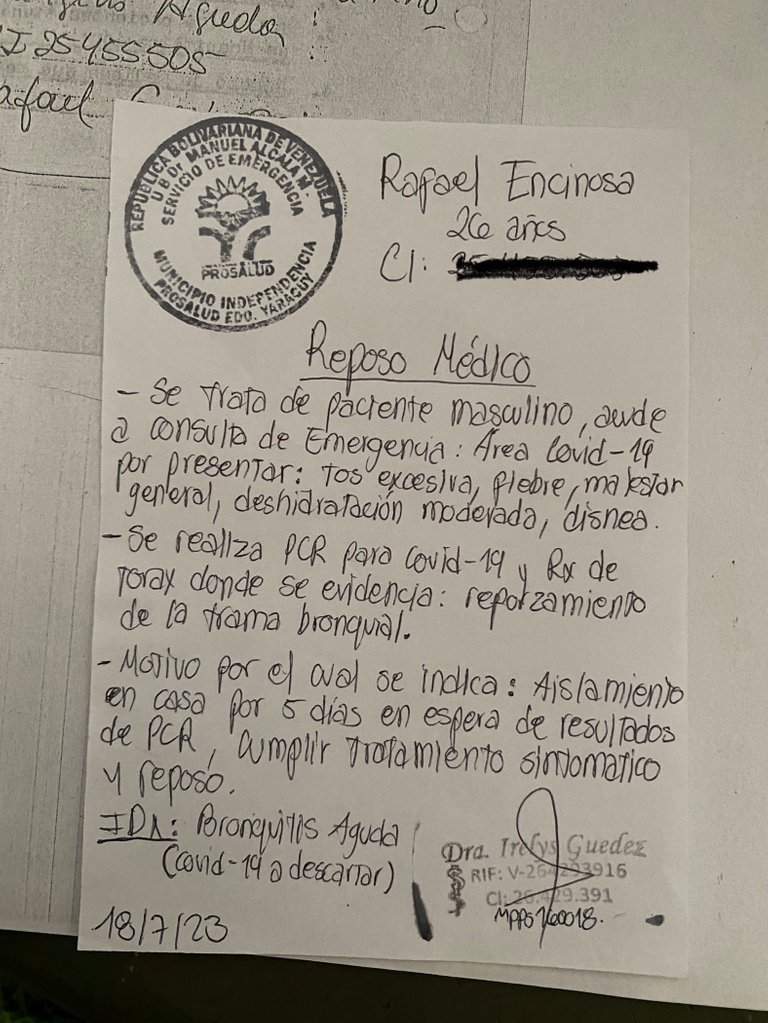 Agueda
I 25455505
Rafael
REPUBLICA BOLIVARIANA DE VENEZUELA
U B Dr. MANUEL ALCALA M.
SERVICIO DE EMERGENCIA
PROSALUD
MUNICIPIO INDEPENDENCIA
PROSALUD EDO. YARACUY
Rafael Encinosa
26 años
CI:
Reposo Médico
- Se trata de paciente masculino, acude
a consulta de Emergencia: Área Covid-19
por presentar: tos excesiva, fiebre, malestar
general, deshidratación moderada, disnea.
- Se realiza PCR para Covid-19 y Rx de
Torax donde se evidencia: reforzamiento
de la trama bronquial.
- Motivo por el cual se indica: Aislamiento
en casa por 5 días en espera de resultados
de PCR, cumplir tratamiento sintomatico
y reposo.
IDx: Bronquitis Aguda
(Covid-19 a descartar)
18/7/23
Dra. Irelys Guedez
RIF: V-264293916
CI: 26.429.391
MPPS 160018.